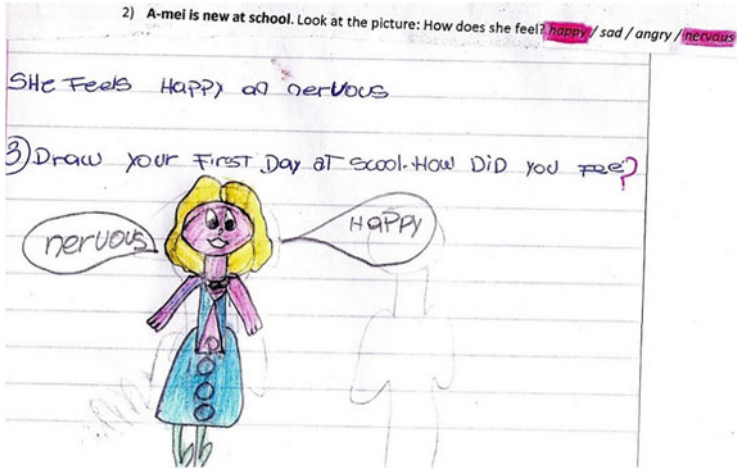 2) A-mei is new at school. Look at the picture: How does she feel? happy / sad / angry / nervous
SHE FEELS HAPPY an nervous
3) Draw your First Day at scool. How DiD you Fee?
nervous
HaPPy